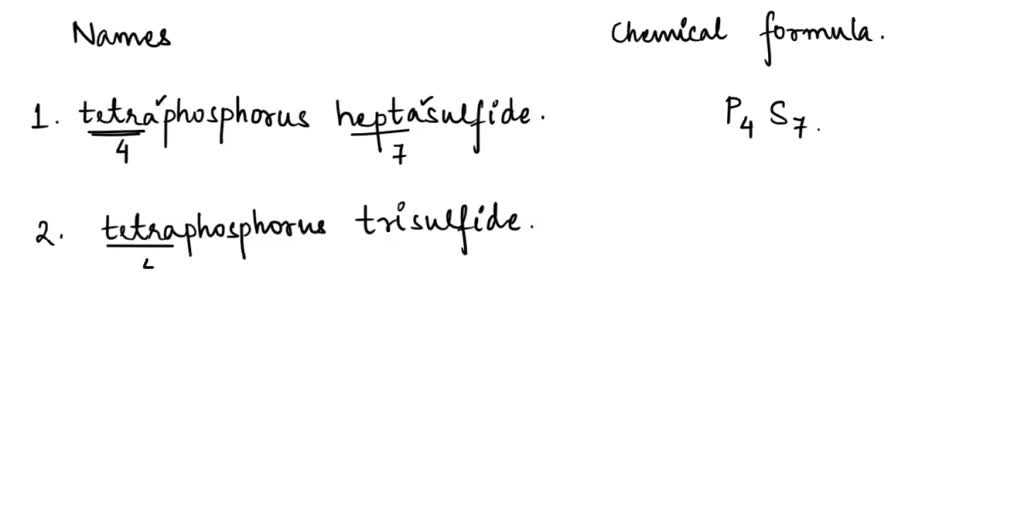 Names Chemical formula.
1. tetraphosphorus heptasulfide. P4 S7.
4 7
2. tetraphosphorus trisulfide.